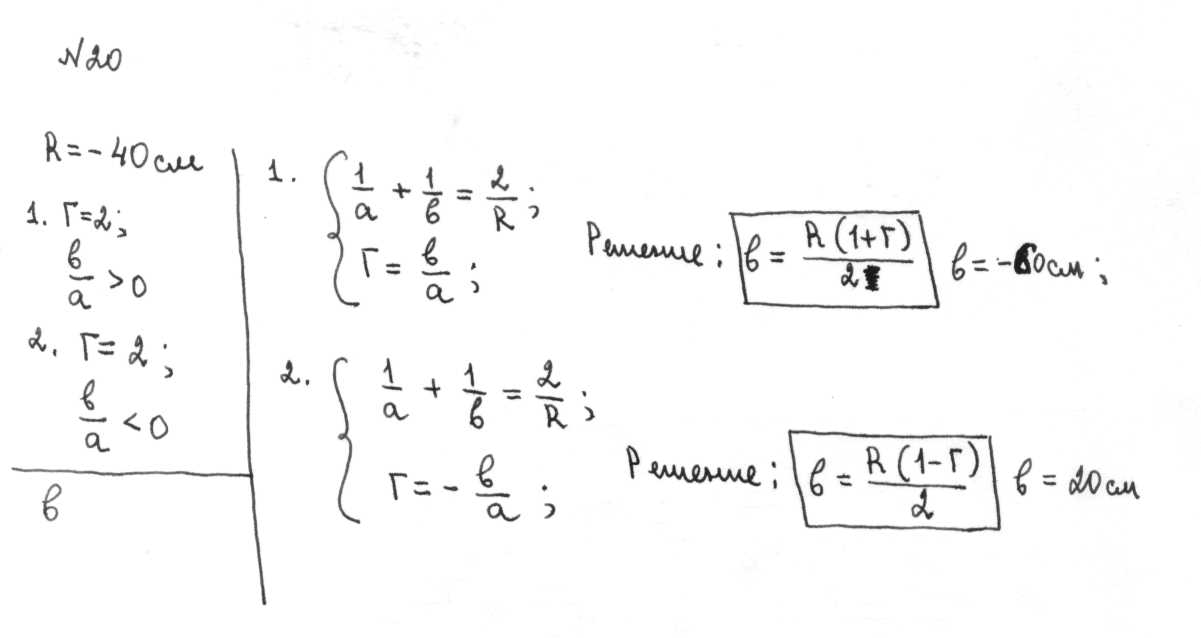 N20
R = - 40 см
1. Г = 2;
в/a > 0
2. Г = 2;
в/a < 0
в
1. { 1/a + 1/в = 2/R;
Г = в/a;
Решение: в = R(1+Г)/2 в = -60 см;
2. { 1/a + 1/в = 2/R;
Г = - в/a;
Решение: в = R(1-Г)/2 в = 20 см